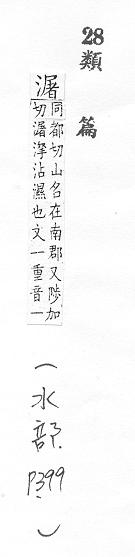 28
類篇
㵭
同都切山名在南郡又陟加
切㵭滓沾濕也文一重音一
(水部
P399
)